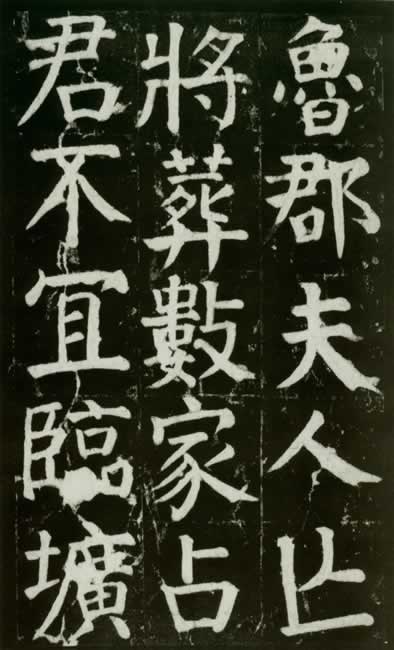 魯郡夫人亾
將葬數家占
君不宜臨壙